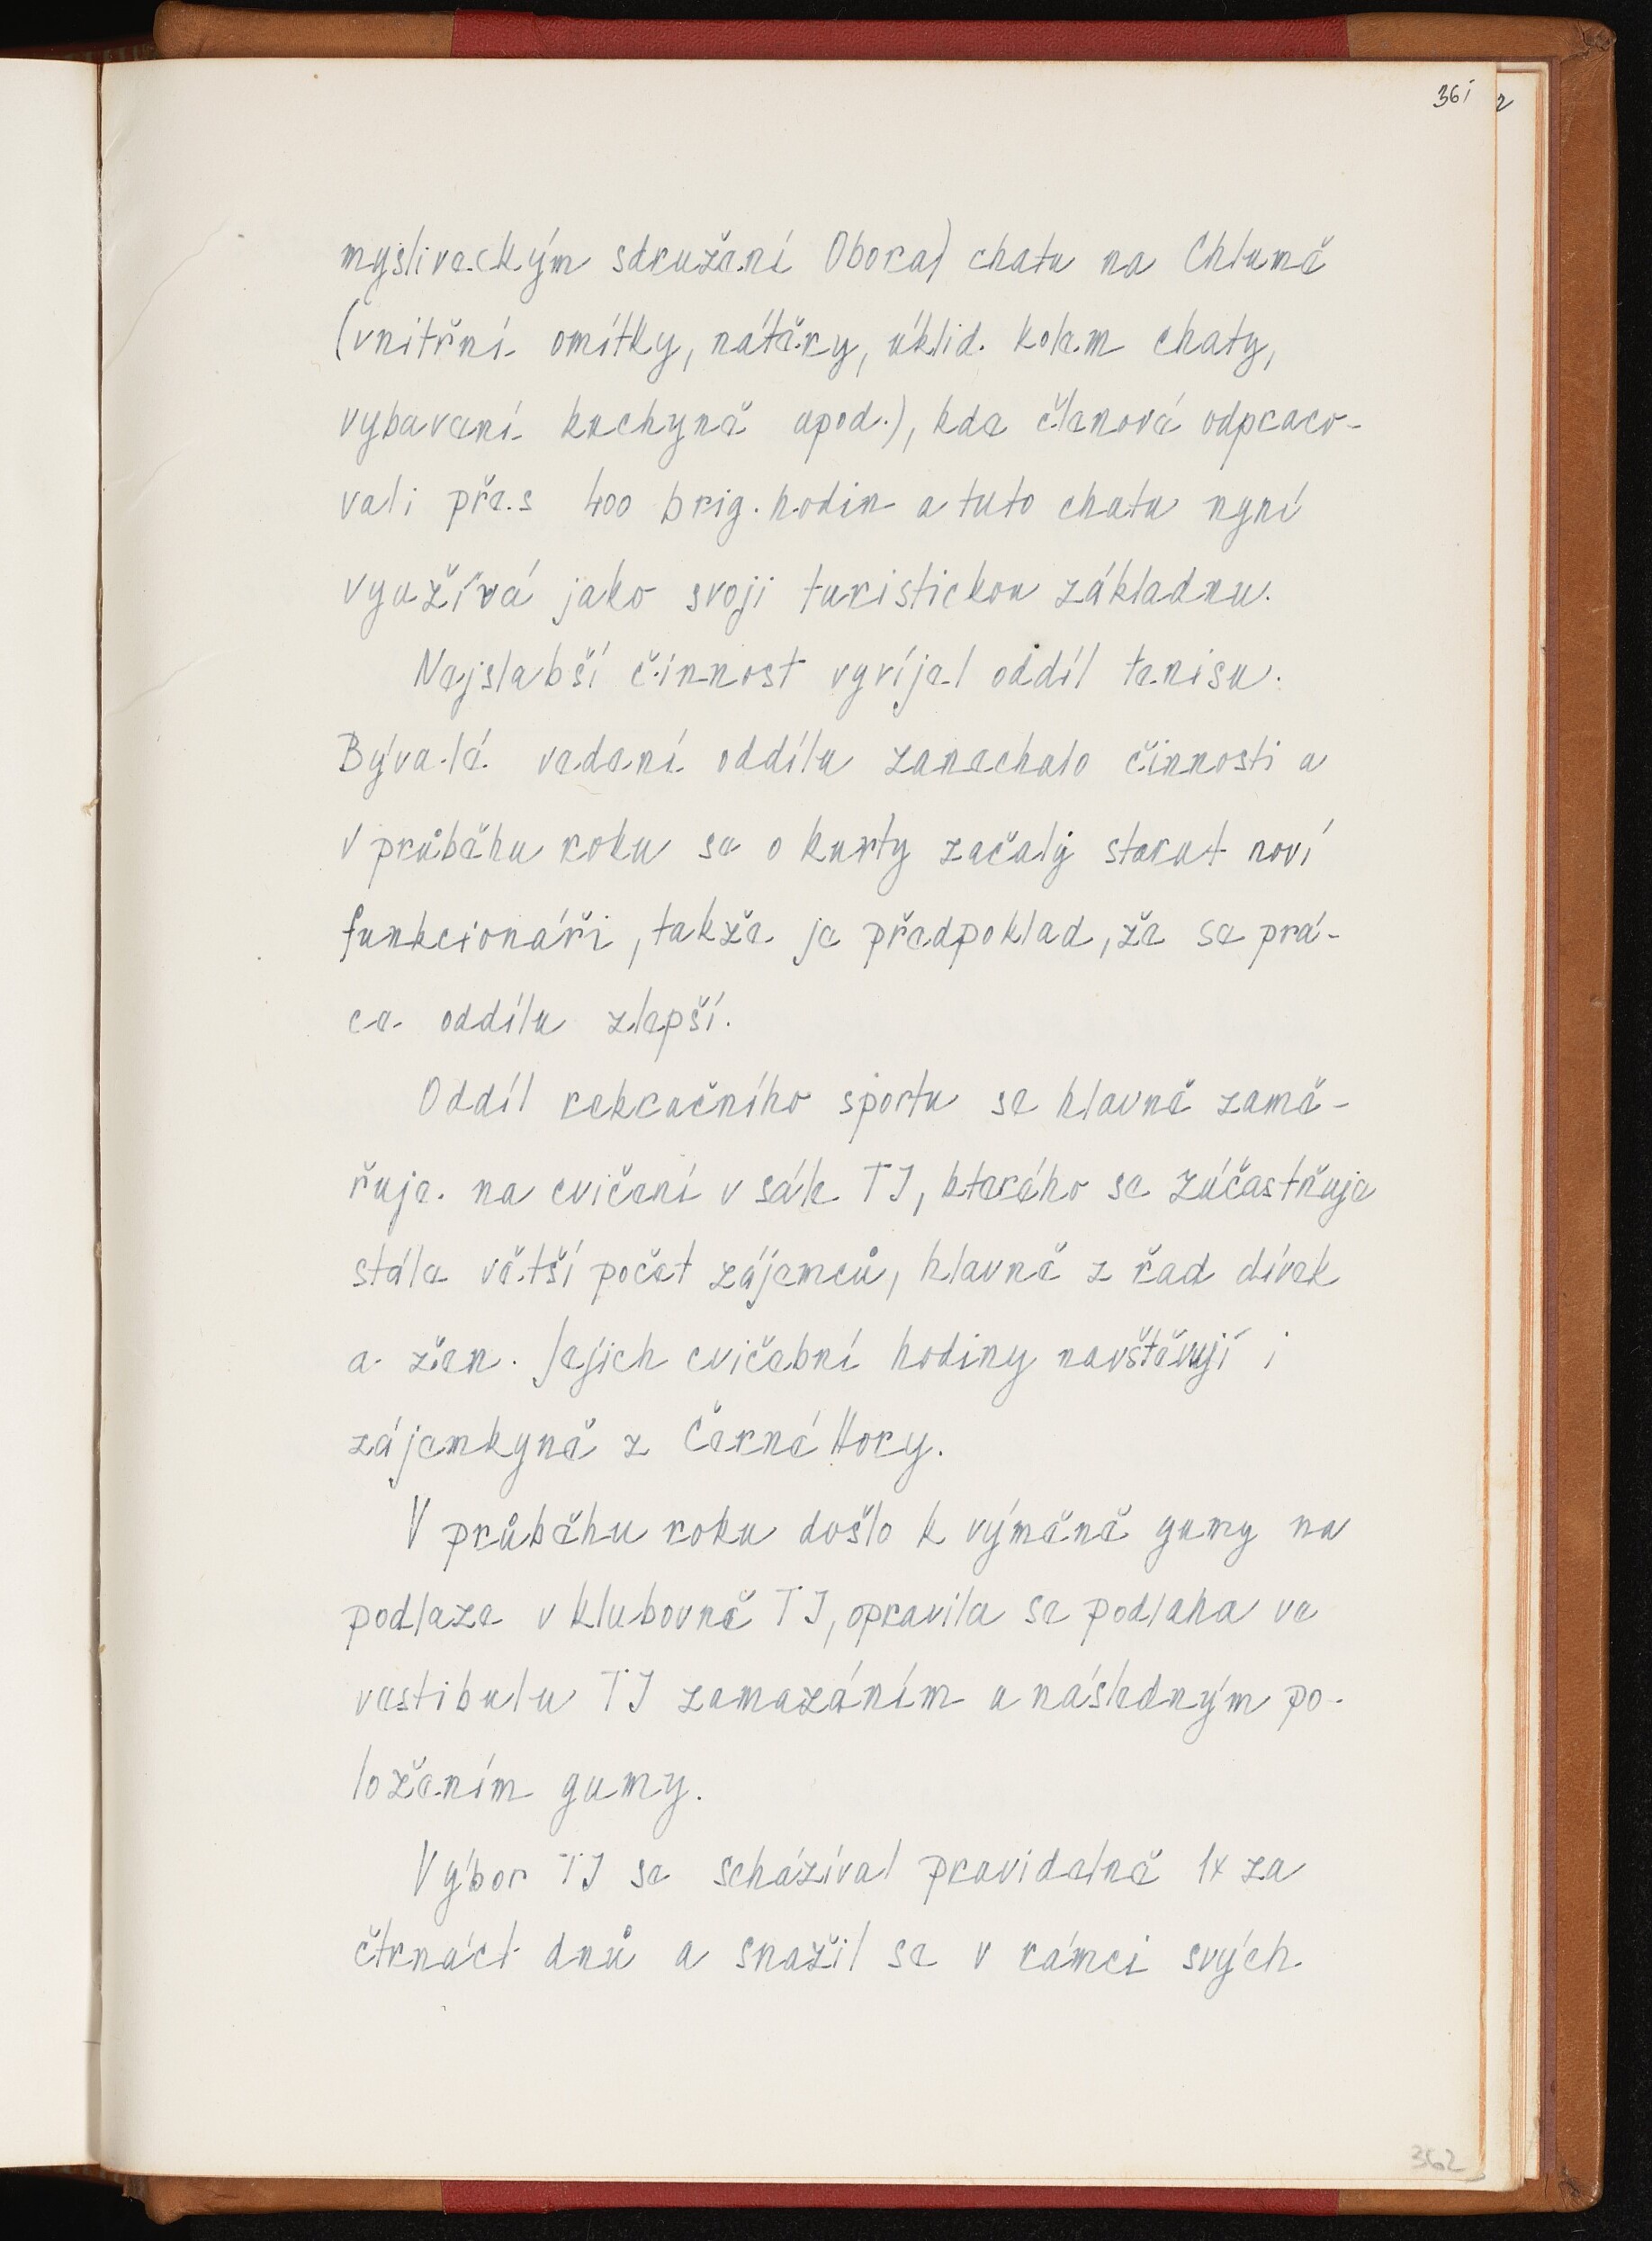 361
mysliveckým sdružení Obora) chatu na Chlumě
(vnitřní omítky, nátěry, úklid kolem chaty,
vybavení kuchyně apod.), kde členové odpraco-
vali přes 400 brig. hodin a tuto chatu nyní
využívá jako svoji turistickou základnu.
Nejslabší činnost vyvíjel oddíl tenisu.
Bývalé vedení oddílu zanechalo činnosti a
v průběhu roku se o kurty začaly starat noví
funkcionáři, takže je předpoklad, že se prá-
ce oddílu zlepší.
Oddíl rekračního sportu se hlavně zamě-
řuje na cvičení v sále TJ, kterého se zúčastňuje
stále větší počet zájemců, hlavně z řad dívek
a žen. Jejich cvičební hodiny navštěvují i
zájemkyně z Černé Hory.
V průběhu roku došlo k výměně gumy na
podlaze v klubovně TJ, opravila se podlaha ve
vestibulu TJ zamazáním a následným po-
ložením gumy.
Výbor TJ se scházíval pravidelně 1x za
čtrnáct dnů a snažil se v rámci svých
362